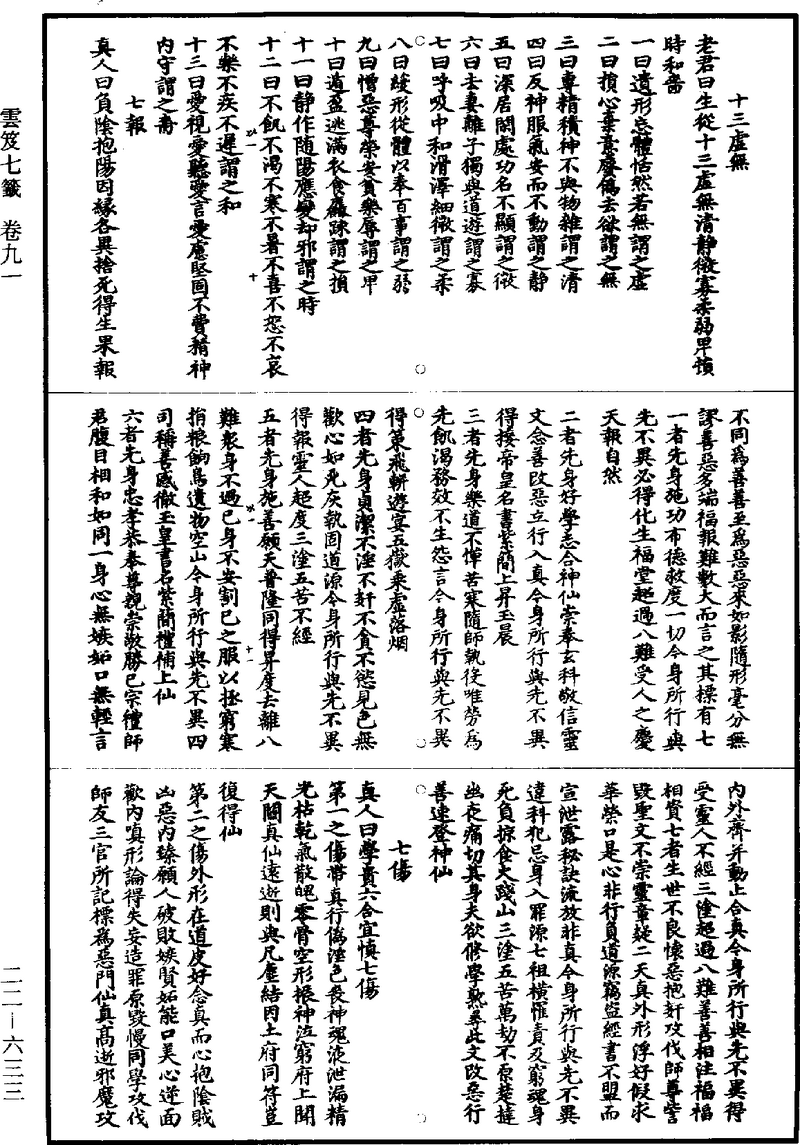 雲笈七籤 卷九一
十三虛無
老君曰生從十三虛無清靜微寡柔弱卑損
時和嗇
一曰遺形忘體恬然若無謂之虛
二曰損心棄意廢偽去欲謂之無
三曰專精積神不與物雜謂之清
四曰反神服氣安而不動謂之靜
五曰深居閑處功名不顯謂之微
六曰去妻離子獨與道遊謂之寡
七曰呼吸中和滑澤細微謂之柔
八曰緩形從體以奉百事謂之弱
九曰憎惡尊榮安貧樂辱謂之卑
十曰遁盈逃滿衣食麤疎謂之損
十一曰靜作隨陽應變却邪謂之時
十二曰不飢不渴不寒不暑不喜不怒不哀
不樂不疾不遲謂之和
十三曰愛視愛聽愛言愛慮堅固不費精神
內守謂之嗇
七報
真人曰負陰抱陽因緣各異捨死得生果報
不同為善善至為惡惡來如影隨形毫分無
謬善惡多端福報難數大而言之其標有七
一者先身施功布德救度一切今身所行與
先不異必得化生福堂超過八難受人之慶
天報自然
二者先身好學志合神仙崇奉玄科敬信靈
文念善改惡立行入真今身所行與先不異
得接帝皇名書紫簡上昇玉晨
三者先身樂道不憚苦寒隨師執役唯勞為
先飢渴務效不生怨言今身所行與先不異
得策飛軿遊宴五嶽乘虛落烟
四者先身貞潔不淫不奸不貪不慾見色無
歡心如死灰執固道源今身所行與先不異
得報靈人超度三塗五苦不經
五者先身施善願天普隆同得昇度去離八
難裝身不過已身不安割已之服以拯窮寒
捐粮飼鳥遺物空山今身所行與先不異四
司稱善感徹玉皇書名紫簡禮補上仙
六者先身忠孝恭奉尊親崇敬勝已宗禮師
君腹目相和如同一身心無嫉妬口無輕言
內外齊并動上合真今身所行與先不異得
受靈人不經三塗超過八難善善相注福福
相資七者生世不良懷惡抱奸攻伐師尊訾
毀聖文不崇靈章疑二天真外形浮好假求
華榮口是心非行負道源竊盜經書不盟而
宣泄露秘訣流放非真今身所行與先不異
違科犯忌身入罪源七祖橫罹責及窮魂身
死負掠食火踐山三塗五苦萬劫不原楚撻
幽夜痛切其身夫欲修學熟尋此文改惡行
善速登神仙
七傷
真人曰學貴六合宜慎七傷
第一之傷帶真行偽淫色喪神魂液泄漏精
光枯乾氣散魄零骨空形振神泣窮府上聞
天關真仙遠逝則與凡塵結因土府同符豈
復得仙
第二之傷外形在道皮好念真而心抱陰賊
凶惡內臻願人破敗嫉賢妬能口美心逆面
歡內嗔形論得失妄造罪原毀慢同學攻伐
師友三官所記標為惡門仙真高逝邪魔攻
二二—六三三